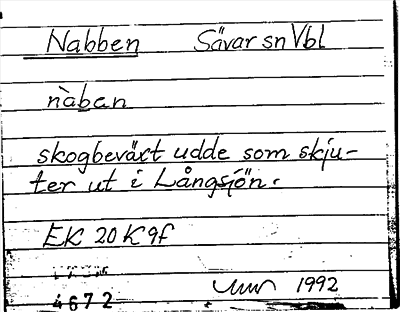 Nabben Sävar sn Vbl
nàban
skogbeväxt udde som skju-
ter ut i Långsjön.
EK 20 K 9f
1992
4672